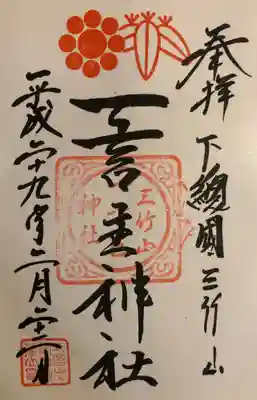 奉拝 下總國三竹山
一言主神社
平成二十九年二月二十二日
三竹山
神社